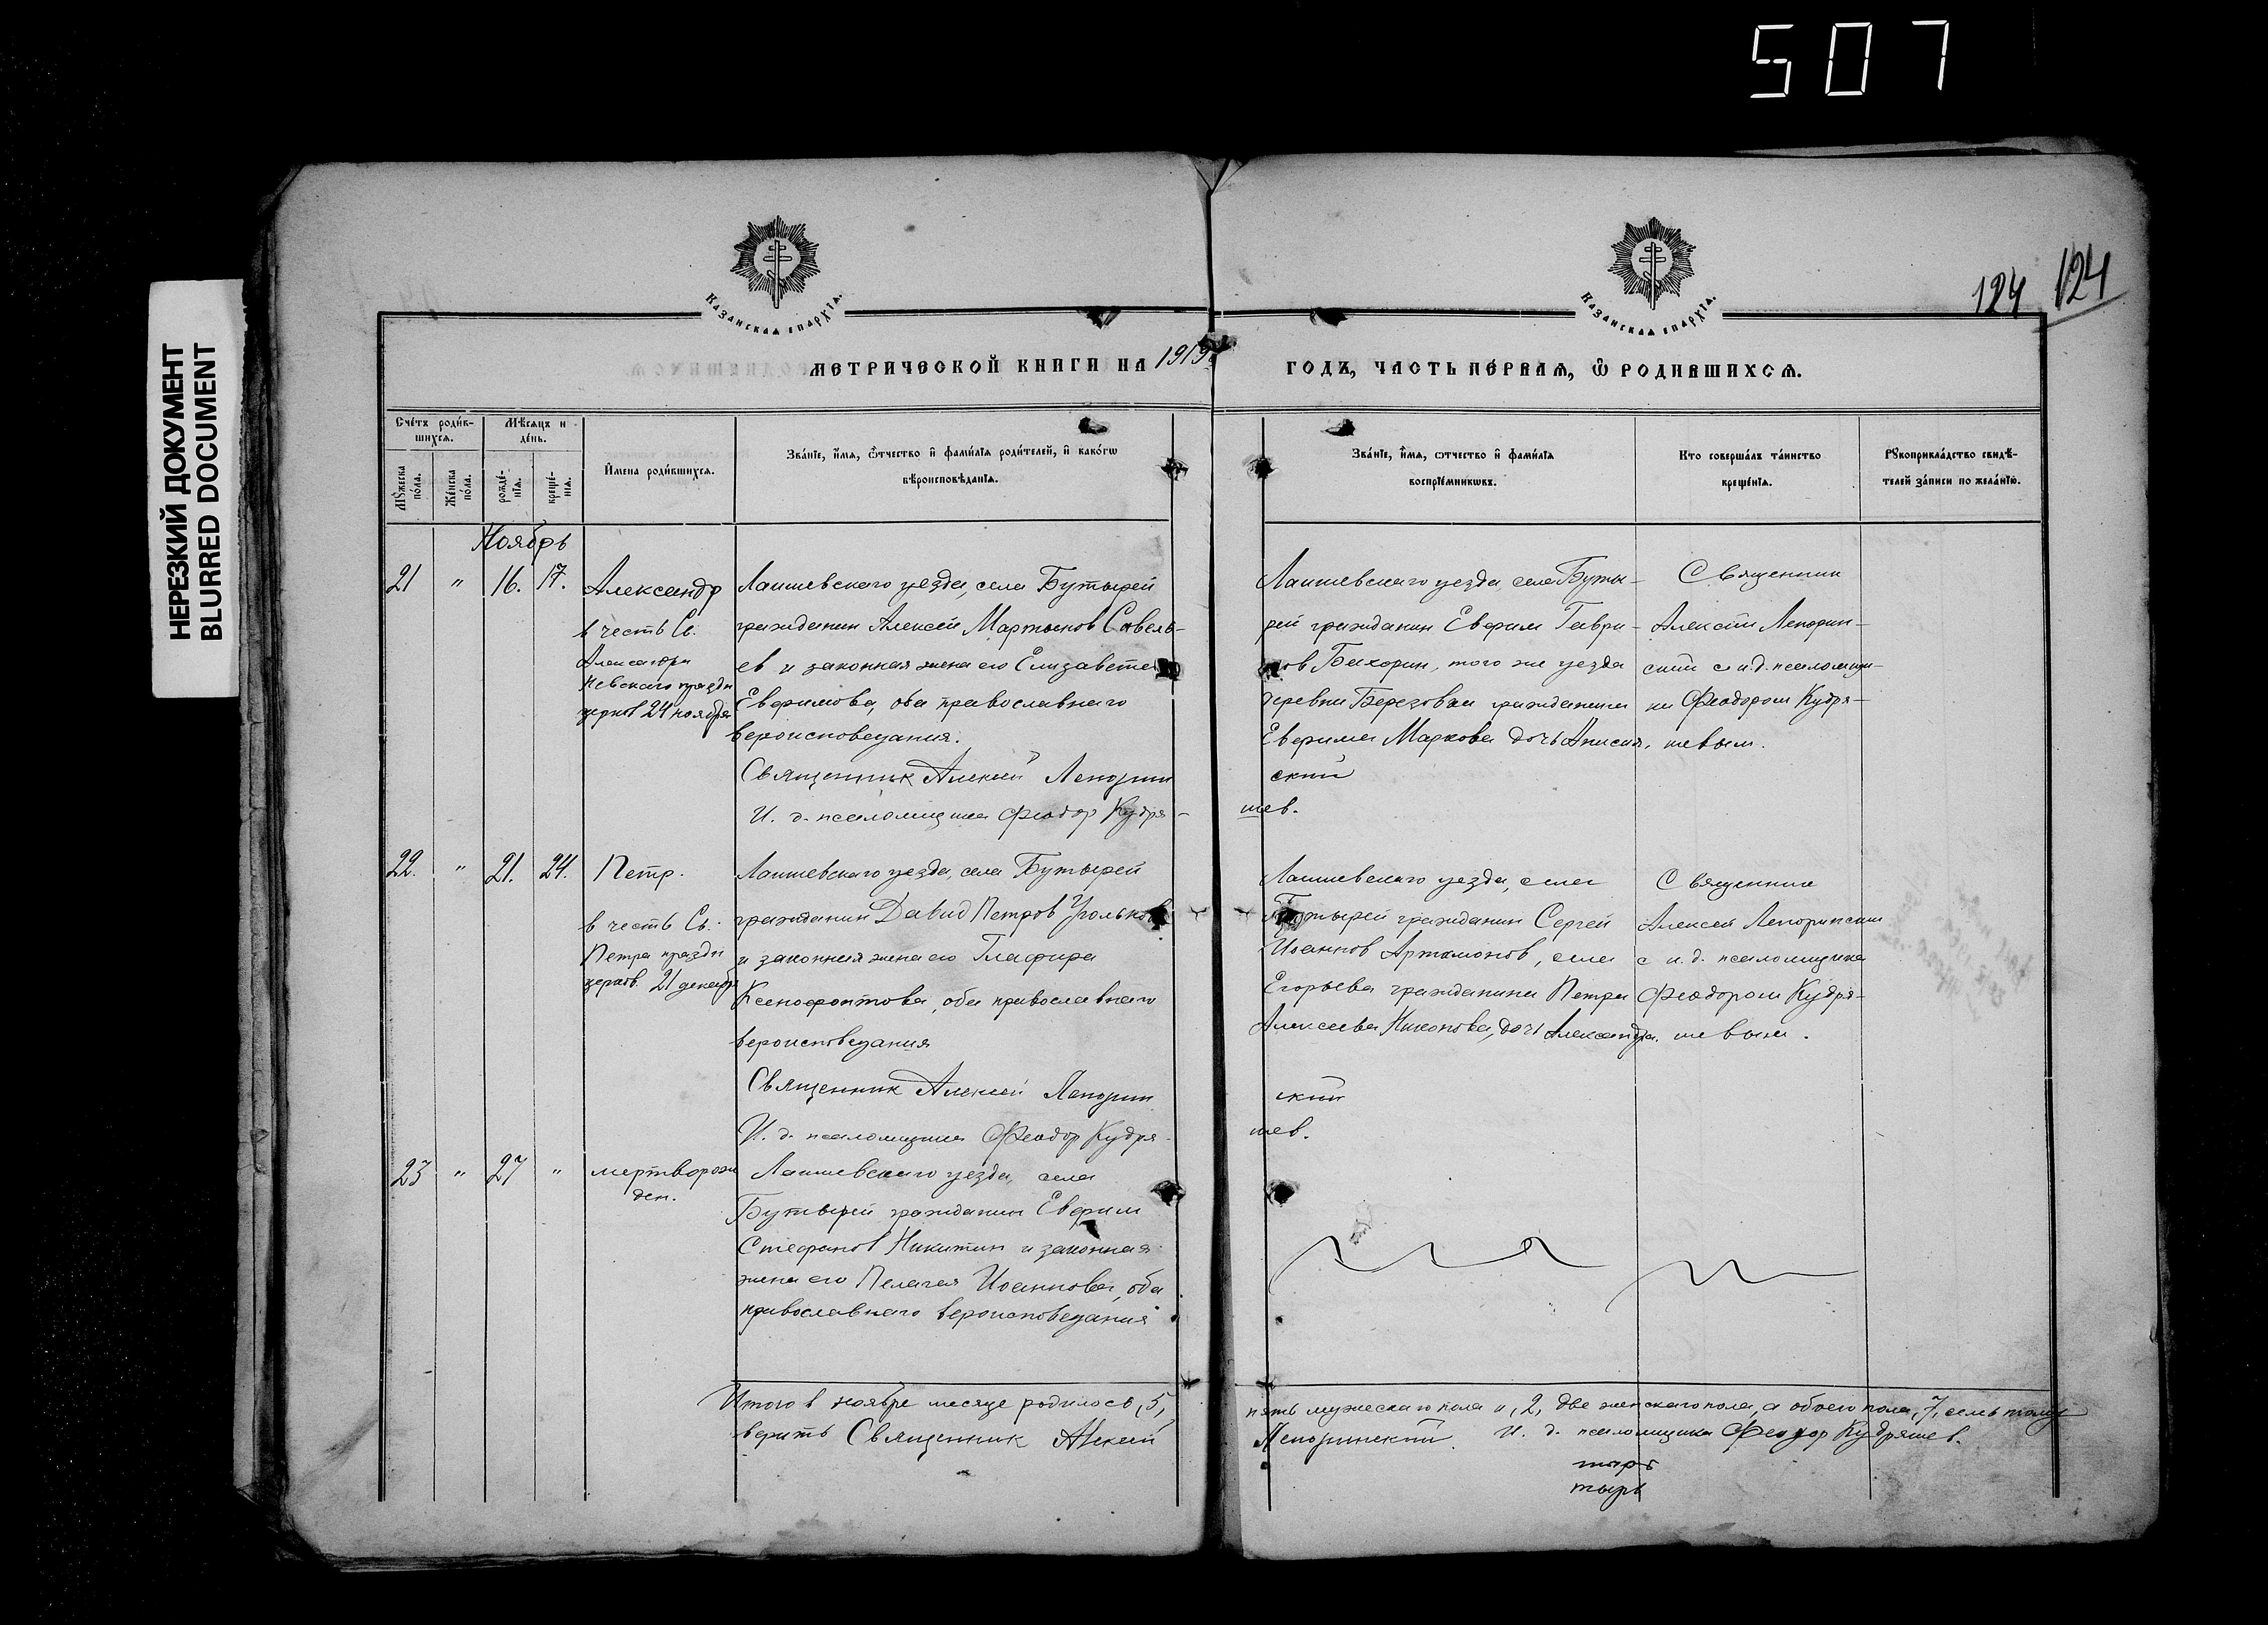 507
НЕРЕЗКИЙ ДОКУМЕНТ
BLURRED DOCUMENT
Казанская епархїя.
Казанская епархїя.
124 124
МЕТРИЧЕСКОЙ КНИГИ НА 1919
ГОДЪ, ЧАСТЬ ПЕ́РВАЯ, Ѽ РОДИВШИХСЯ.
Сче́тъ роди́в-
шихся.
Мѣсяцъ и
де́нь.
Му́жеска
по́ла.
Же́нска
по́ла.
рожде́-
нїя.
креще́-
нїя.
И҆мена роди́вшихся.
Зва́нїе, и҆́мя, ѻ҆́тчество и҆ фами́лїя роди́телей, и҆ како́гѡ
вѣроисповѣ́данїя.
Зва́нїе, и҆́мя, ѻ҆тчество и҆ фами́лїя
воспрїе́мникѡвъ.
Кто соверша́лъ та́инство
креще́нїя.
Рꙋкоприкла́дство свидѣ́-
телей за́писи по жела́нїю.
Ноябрь
21 " 16. 17.
Александр
в честь Св.
Александра
Невского праздн
церков 24 ноября
Лаишевскаго уезда, села Бутырей
гражданин Алексей Мартынов Савель-
ев и законная жена его Елизавета
Евфимова, оба православнаго
вероисповедания.
Священник Алексей Лепорин
И. д. псаломщика Феодор Кудря-
Лаишевскаго уезда, села Буты-
рей гражданин Евфим Гаври-
ов Бахорин, того же уезда
деревни Березовки гражданина
Евфима Маркова дочь Анисия.
ский
шев.
Священник
Алексей Лепорин-
ский с и.д. псаломщи-
ка Феодором Кудря-
шевым.
22. " 21. 24.
Петр.
в честь Св.
Петра праздн
церков. 21 декабр
Лаишевскаго уезда, села Бутырей
гражданин Давид Петров Угольков
и законная жена его Глафира
Ксенофонтова, оба православнаго
вероисповедания
Священник Алексей Лепорин
И. д. псаломщика Феодор Кудря-
Лаишевскаго уезда, села
Бутырей гражданин Сергей
Иоаннов Артамонов, села
Егорьева гражданина Петра
Алексеева Никонова, дочь Александра.
ский
шев.
Священник
Алексей Лепоринский
с и. д. псаломщика
Феодором Кудря-
шевым.
23 " 27 "
мертворож
ден.
Лаишевскаго уезда, села
Бутырей гражданин Евфим
Стефанов Никитин и законная
жена его Пелагея Иоаннова, оба
православнаго вероисповедания
Итого в ноябре месяце родилось, 5,
пять мужескаго пола и, 2, две женскаго пола, а обоего пола, 7, семь
верить Священник Алексей
Лепоринский. И. д. псаломщика Феодор Кудряшев.
тырь
тырь